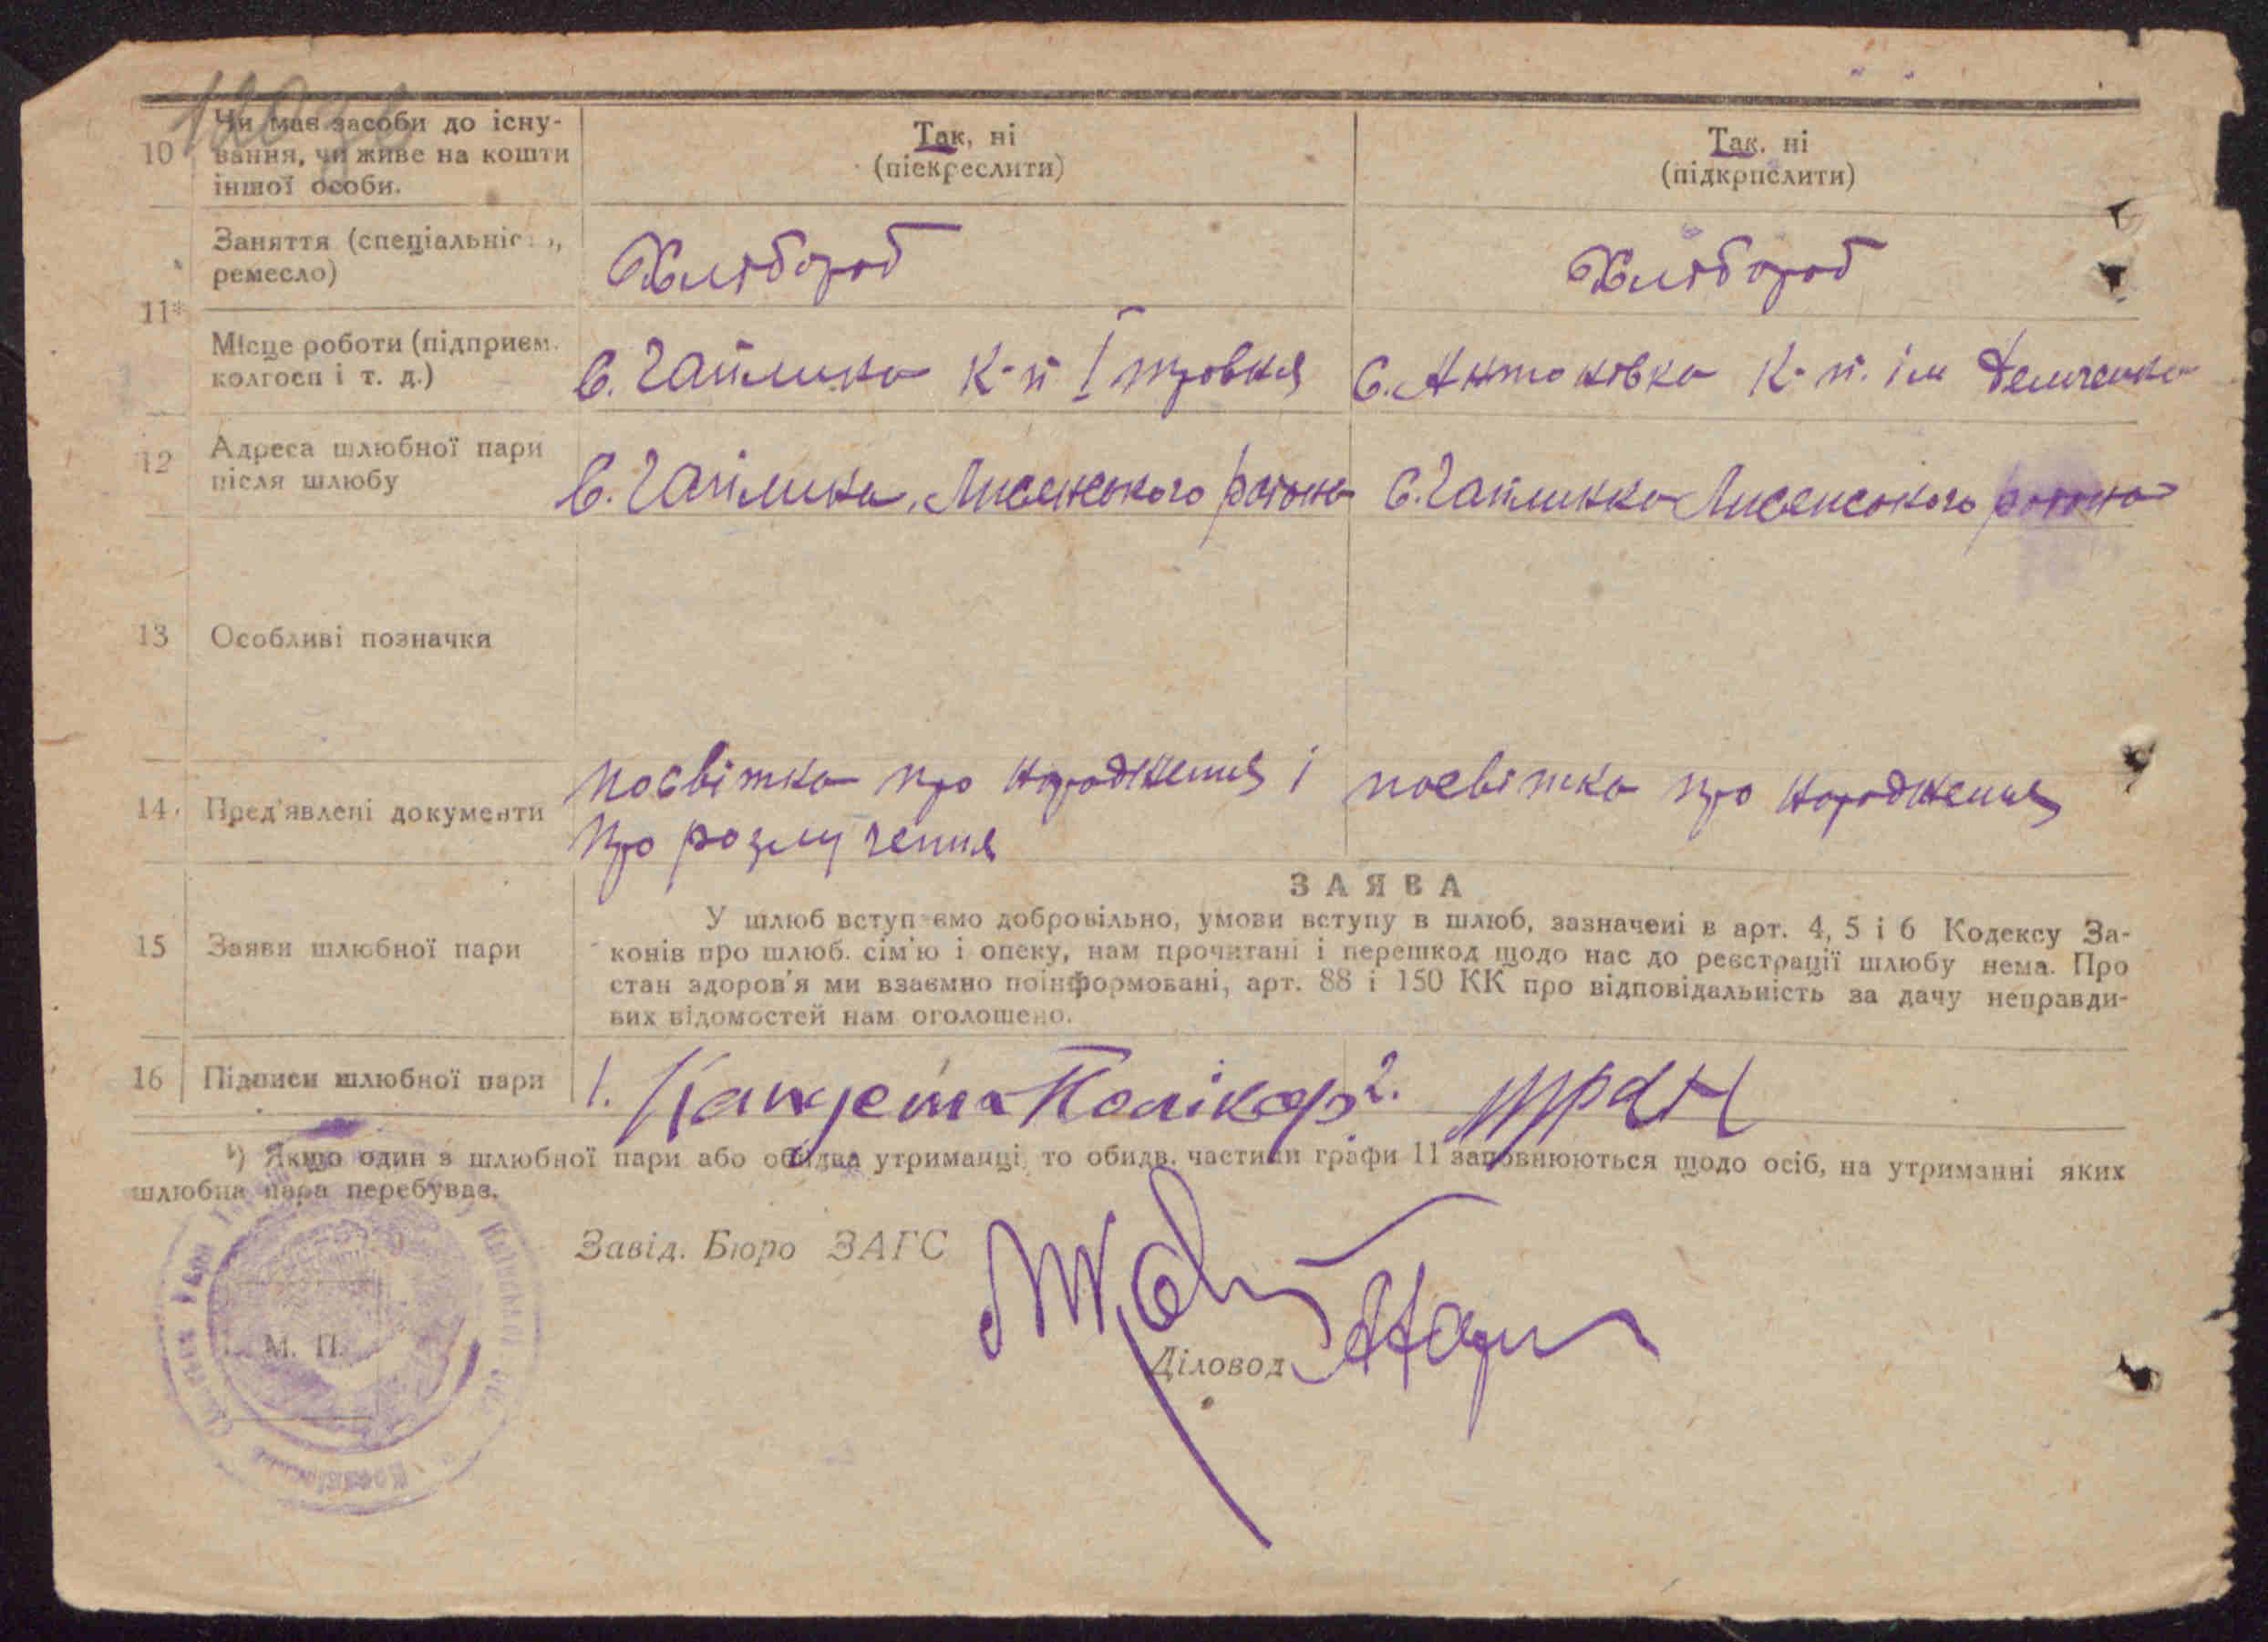 10
Чи має засоби до існу-
вання, чи живе на кошти
іншої особи.
Так, ні
(піекреслити)
Так. ні
(підкрислити)
11*
Заняття (спеціальніс
ремесло)
Хлібороб
Хлібороб
Місце роботи (підприєм.
колгосп і т. д.)
С. Чаплинка К-п І травня
С. Антоновка К-п. ім Демченка
12
Адреса шлюбної пари
після шлюбу
С. Чаплинка, Лисенського району
С. Чаплинка Лисенського району
13
Особливі позначки
14.
Пред'явлені документи
посвітка про народження і
про розлучення
посвітка про народження
15
Заяви шлюбної пари
ЗАЯВА
У шлюб вступаємо добровільно, умови вступу в шлюб, зазначені в арт. 4, 5 і 6 Кодексу За-
конів про шлюб. сім'ю і опеку, нам прочитані і перешкод щодо нас до реєстрації шлюбу нема. Про
стан здоров'я ми взаємно поінформовані, арт. 88 і 150 КК про відповідальність за дачу неправди-
вих відомостей нам оголошено.
16
Підписи шлюбної пари
1.
2.
*) Якщо один з шлюбної пари або обидва утриманці, то обидв. частини графи 11 заповнюються щодо осіб, на утриманні яких
шлюбна пара перебуває.
Завід. Бюро ЗАГС
М. П.
Діловод